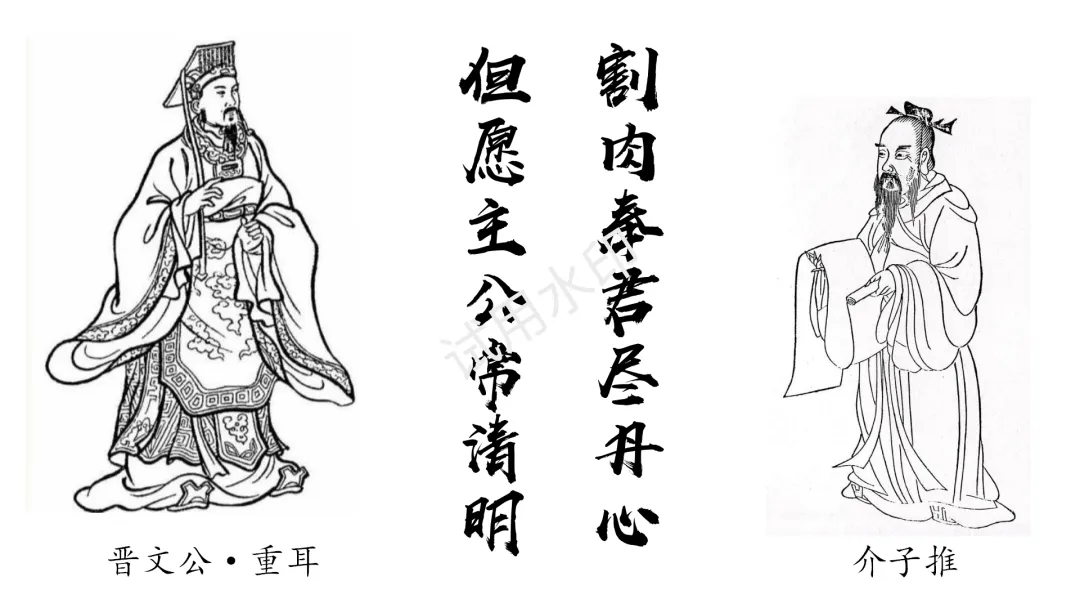 割肉奉君尽丹心
但愿主公常清明
晋文公·重耳
介子推
试用水印